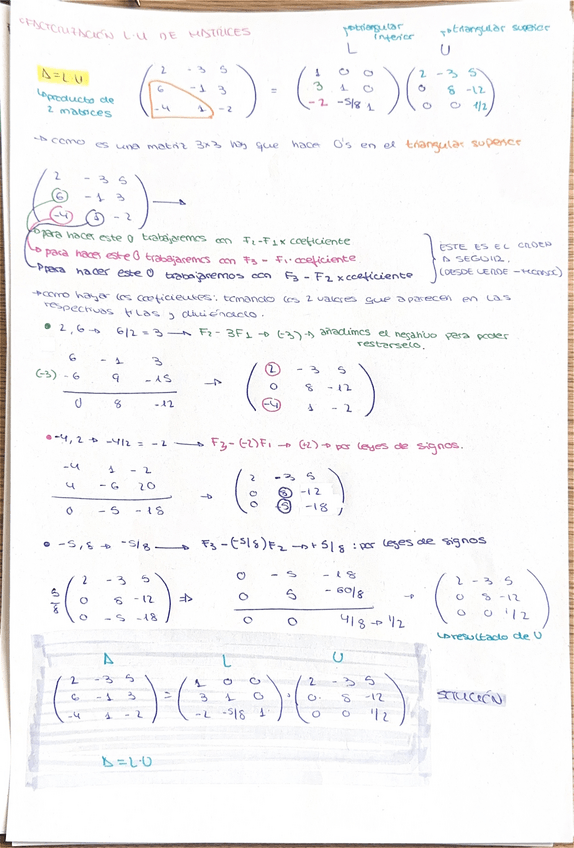 FACTORIZACIÓN L·U DE MATRICES
↳triangular inferior
↳triangular superior
L U
A=L·U
↳producto de 2 matrices
2 -3 5
6 -1 3
-4 1 -2
=
1 0 0
3 1 0
-2 -5/8 1
2 -3 5
0 8 -12
0 0 1/2
→ como es una matriz 3x3 hay que hacer 0's en el triangular superior
2 -3 5
6 -1 3
-4 1 -2
→
↳para hacer este 0 trabajaremos con F2-F1xcoeficiente
↳para hacer este 0 trabajaremos con F3 - F1·coeficiente
↳para hacer este 0 trabajaremos con F3 - F2xcoeficiente
ESTE ES EL ORDEN
A SEGUIR.
→como hayar los coeficientes: tomando los 2 valores que aparecen en las
respectivas filas y dividiendolo.
• 2,6 → 6/2 = 3 → F2 - 3F1 → (-3) → añadimos el negativo para poder
restarselo.
6 -1 3
(-3) -6 9 -15
0 8 -12
→
2 -3 5
0 8 -12
-4 1 -2
• -4, 2 → -4/2 = -2 → F3-(-2)F1 → (+2) → por leyes de signos.
-4 1 -2
4 -6 20
0 -5 -18
→
2 -3 5
0 8 -12
0 -5 -18
• -5, 8 → -5/8 → F3-(-5/8)F2 → +5/8 : por leyes de signos
5/8
2 -3 5
0 8 -12
0 -5 -18
⇒
0 -5 -18
0 5 -60/8
0 0 4/8 → 1/2
→
2 -3 5
0 8 -12
0 0 1/2
↳resultado de U
A L U
2 -3 5
6 -1 3
-4 1 -2
=
1 0 0
3 1 0
-2 -5/8 1
·
2 -3 5
0 8 -12
0 0 1/2
SOLUCIÓN
A=L·U